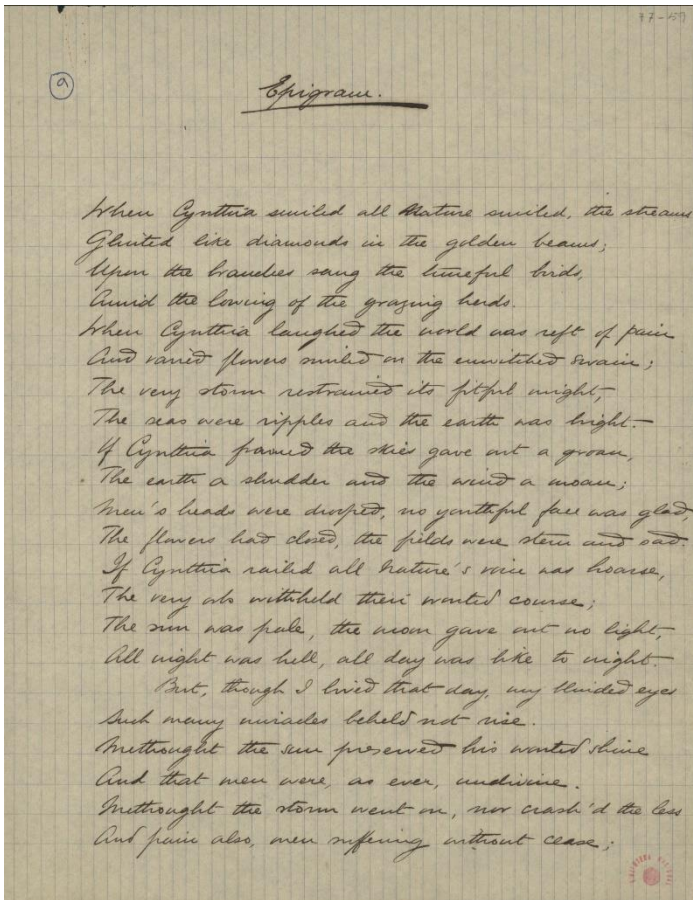 37-50
9
Epigram.
When Cynthia smiled all Nature smiled, the streams
Glinted like diamonds in the golden beams;
Upon the branches sang the tuneful birds,
Amid the lowing of the grazing herds.
When Cynthia laughed the world was reft of pain
And varied flowers smiled on the unwitched swain;
The very storm restrained its fitful might,
The seas were ripples and the earth was bright.
If Cynthia frowned the skies gave out a groan,
The earth a shudder and the wind a moan;
Men's heads were drooped, no youthful face was glad,
The flowers had closed, the fields were stern and sad.
If Cynthia railed all nature's voice was hoarse,
The very orbs withheld their wonted course;
The sun was pale, the moon gave out no light,
All night was hell, all day was like to night.
But, though I lived that day, my blinded eyes
Such many miracles beheld not rise.
Methought the sun preserved his wonted shine
And that men were, as ever, undivine.
Methought the storm went on, nor crash'd the less
And pain also, men suffering without cease;